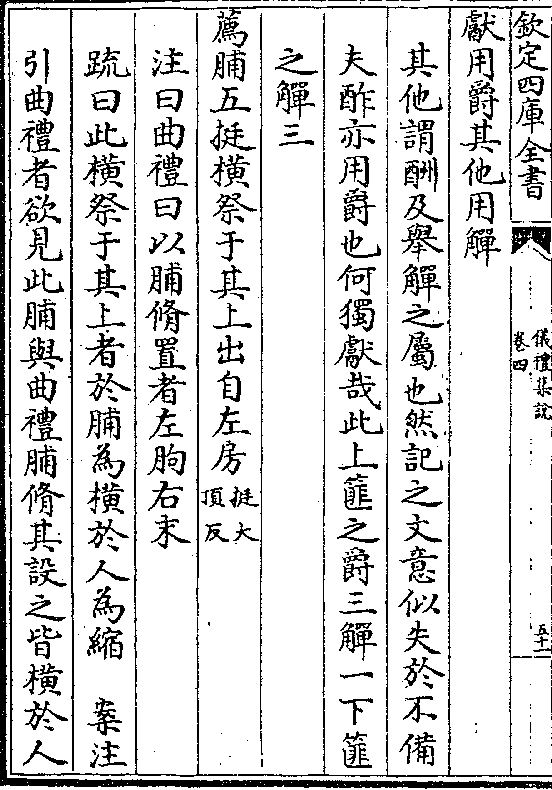 欽定四庫全書
儀禮集說
卷四
五十一
獻用爵其他用觶
其他謂酬及舉觶之屬也然記之文意似失於不備
夫酢亦用爵也何獨獻哉此上篚之爵三觶一下篚
之觶三
薦脯五挺橫祭于其上出自左房挺大頂反
注曰曲禮曰以脯脩置者左朐右末
疏曰此橫祭于其上者於脯為橫於人為縮　案注
引曲禮者欲見此脯與曲禮脯脩其設之皆橫於人